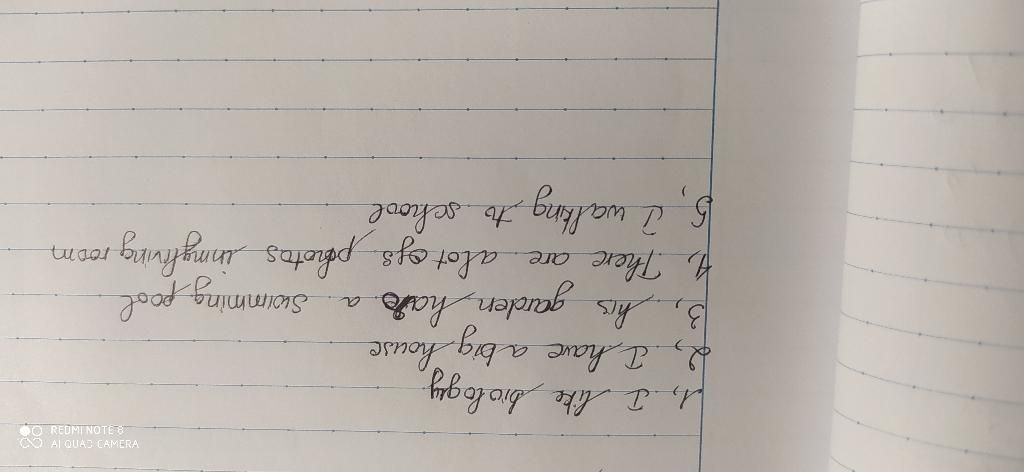 1, I like biology
2, I have a big house
3, his garden has a swimming pool
4, There are a lot ofs photos in my living room
5, I walking to school
REDMI NOTE 8
AI QUAD CAMERA